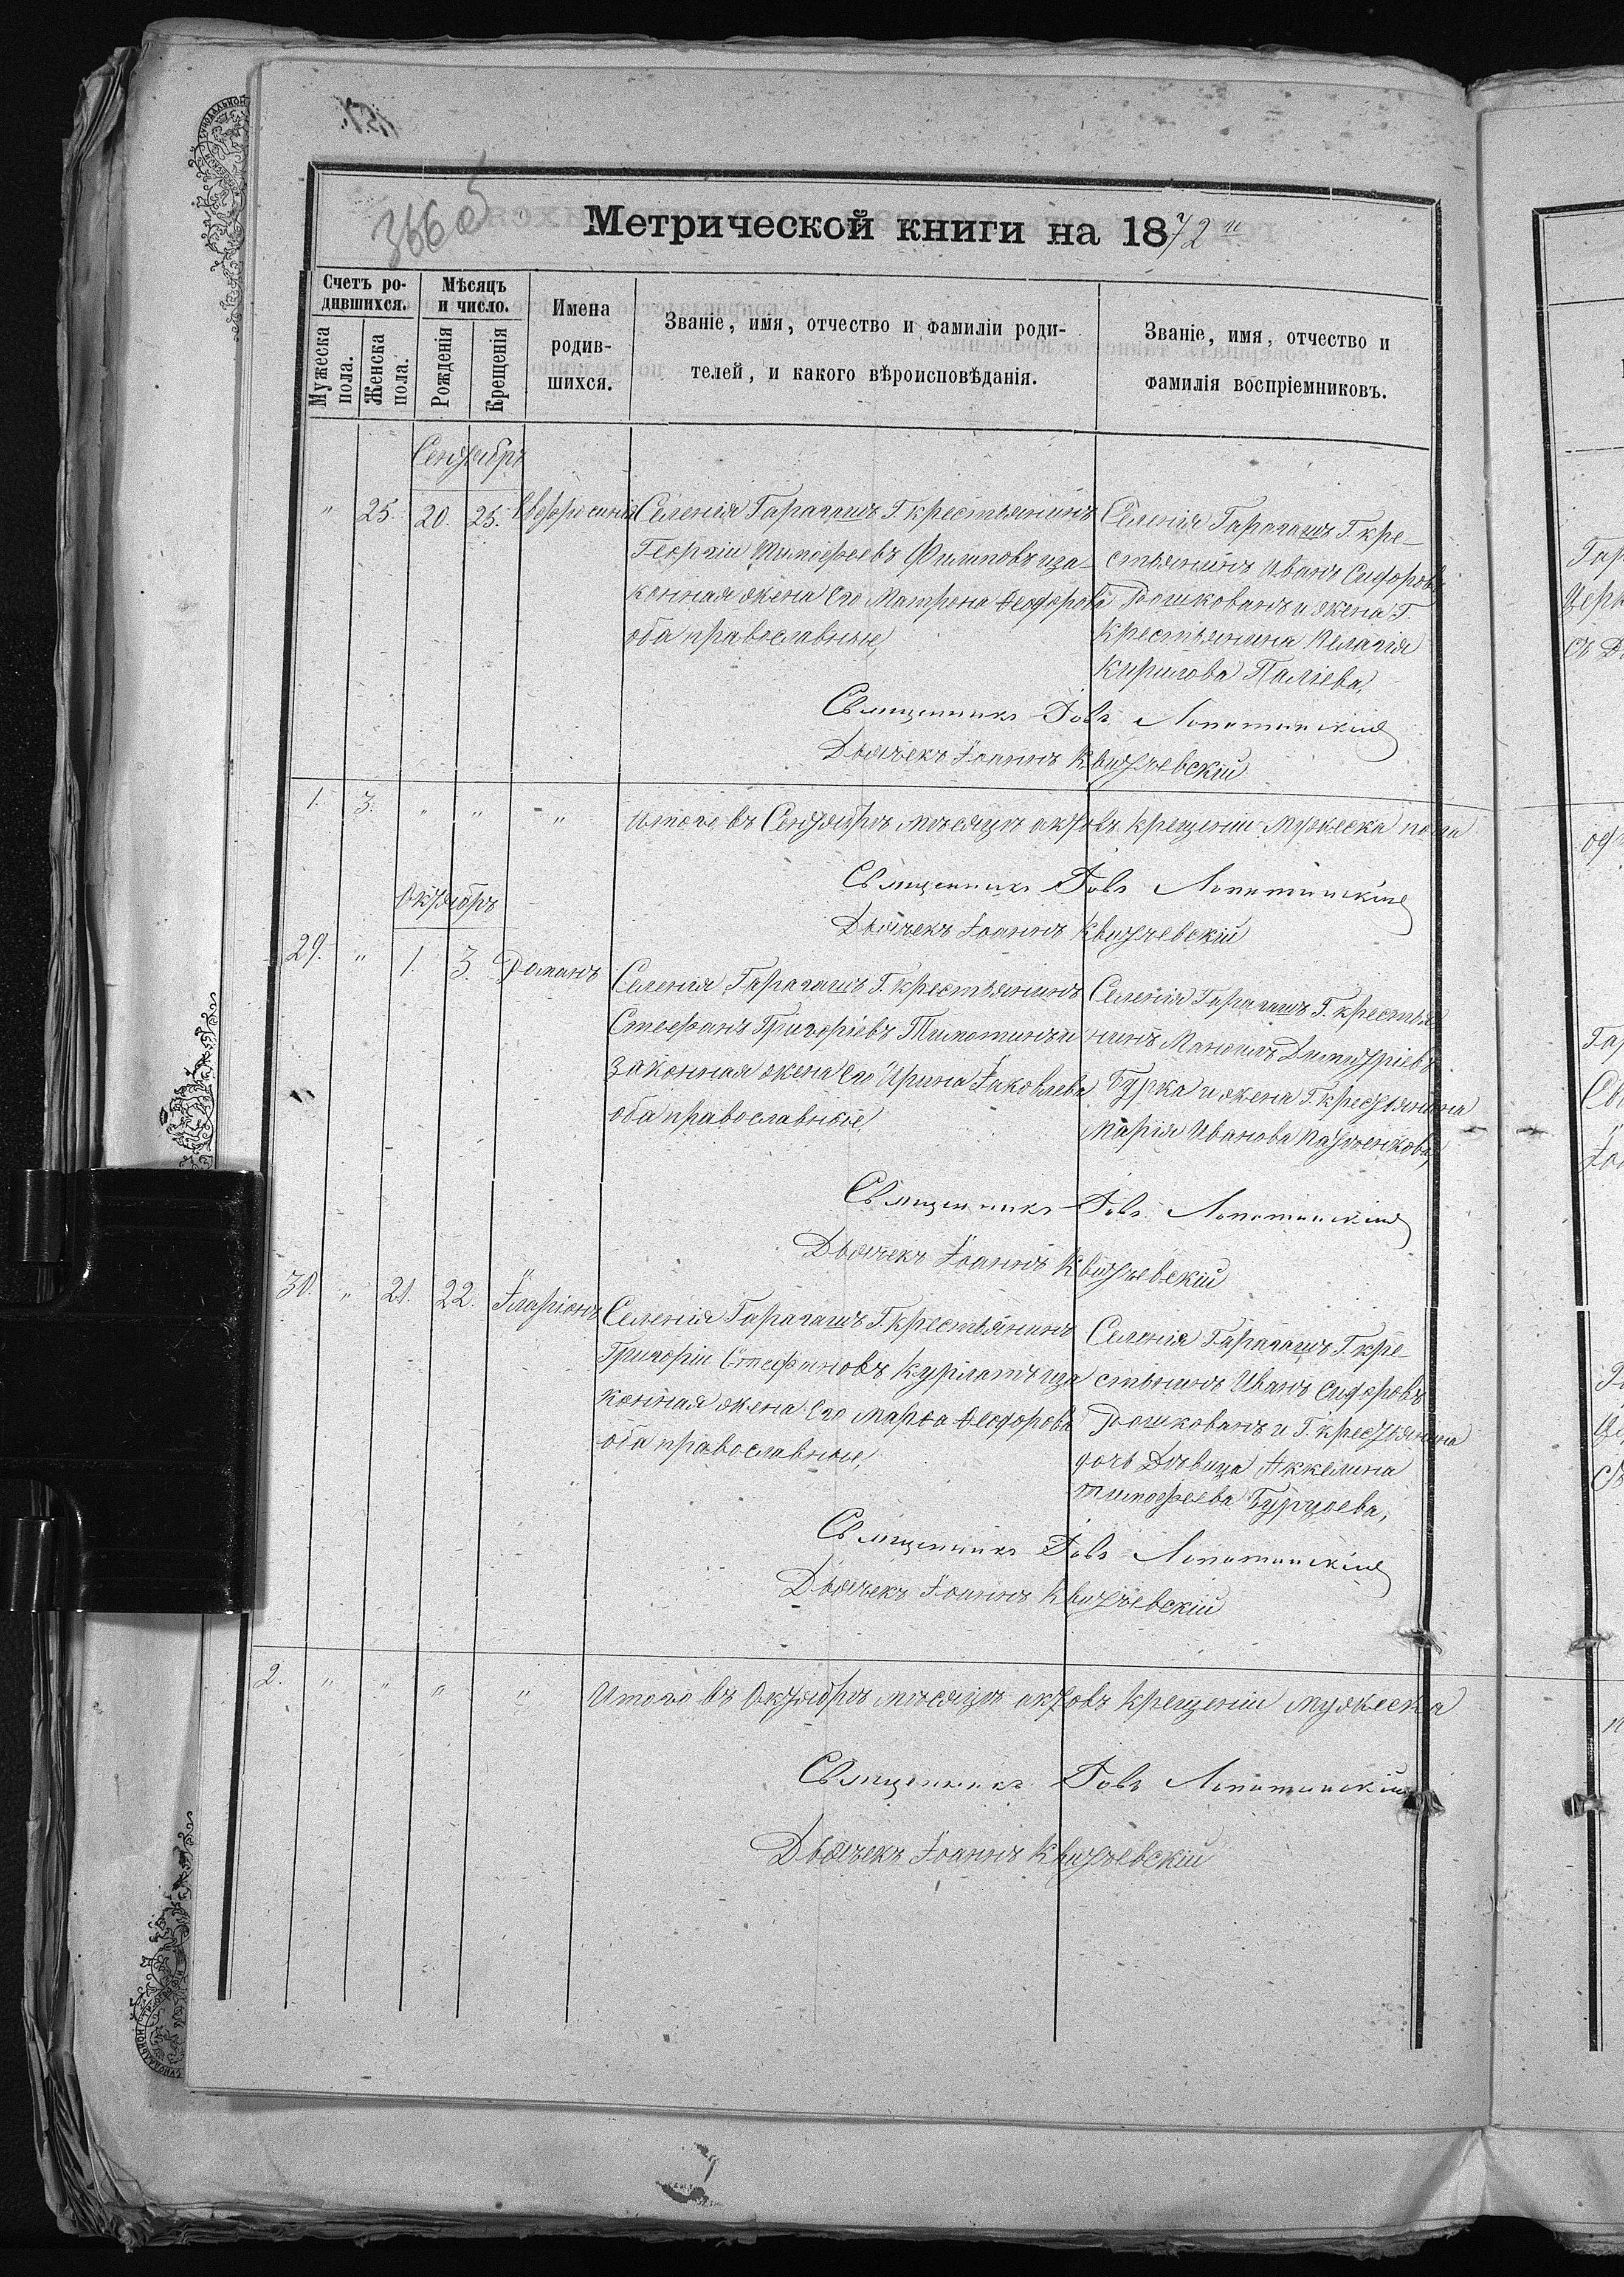 366 об
Метрической книги на 1872 й
Счетъ ро-
дившихся.
Мѣсяцъ
и число.
Мужеска
пола.
Женска
пола.
Рожденія
Крещенія
Имена
родив-
шихся.
Званіе, имя, отчество и фамиліи роди-
телей, и какого вѣроисповѣданія.
Званіе, имя, отчество и
фамилія воспріемниковъ.
Сентябрь
" 25. 20. 25. Евфросинія
Селенія Гарагашъ Г. крестьянинъ
Георгіи Тимофеевъ Филиповъ иза-
конная жена Его Матрона Ѳеодорова
оба православные,
Селенія Гарагашъ Г. кре-
стьянинъ Иванъ Сидоровъ
Рошкованъ и жена Г.
Крестьянина Пелагія
Кирилова Паліева,
Священникъ Іовъ Лопатинскій
Дьячекъ Іоаннъ Квитчевскій
1. 3. " " "
Итого въ Сентябрѣ мѣсяцѣ актовъ крещеніи мужеска пола
Священникъ Іовъ Лопатинскій
Дьячекъ Іоаннъ Квитчевскій
Октябрь
29. " 1. 3. Романъ
Селенія Гарагашъ Г. Крестьянинъ
Стефанъ Григоріевъ Тимотинъ и
законная жена Его Ирина Іаковлева
оба православные,
Селенія Гарагашъ Г. крестья
нинъ Маноилъ Димитріевъ
Бурка и жена Г. крестьянина
Марія Иванова
Священникъ Іовъ Лопатинскій
Дьячекъ Іоаннъ Квитчевскій
30. " 21. 22. Іларіонъ
Селенія Гарагашъ Г. крестьянинъ
Григоріи Стефановъ Курлатъ иза
конная жена Его Марѳа Ѳеодорова
оба православные,
Селенія Гарагашъ Г. кре-
стьнинъ Иванъ Сидоровъ
Рошкованъ и Г. крестьянина
дочь Дѣвица Аккелина
Тимофеева
Священникъ Іовъ Лопатинскій
Дьячекъ Іоаннъ Квитчевскій
2. " " " "
Итого въ Октябрѣ мѣсяцѣ актовъ Крещеніи мужеска
Священникъ Іовъ Лопатинскій
Дьячекъ Іоаннъ Квитчевскій